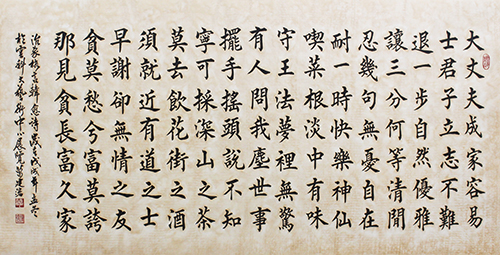 大丈夫成家容易
士君子立志不難
退一步自然優雅
讓三分何等清閒
忍幾句無憂自在
耐一時快樂神仙
喫菜根淡中有味
守王法夢裡無驚
有人問我塵世事
擺手搖頭說不知
寧可採深山之茶
莫去飲花街之酒
須就近有道之士
早謝卻無情之友
貧莫愁兮富莫誇
那見貧長富久家
治家格言 忍詩歲 戊戌年孟冬
於雲科大藝術中心展覽